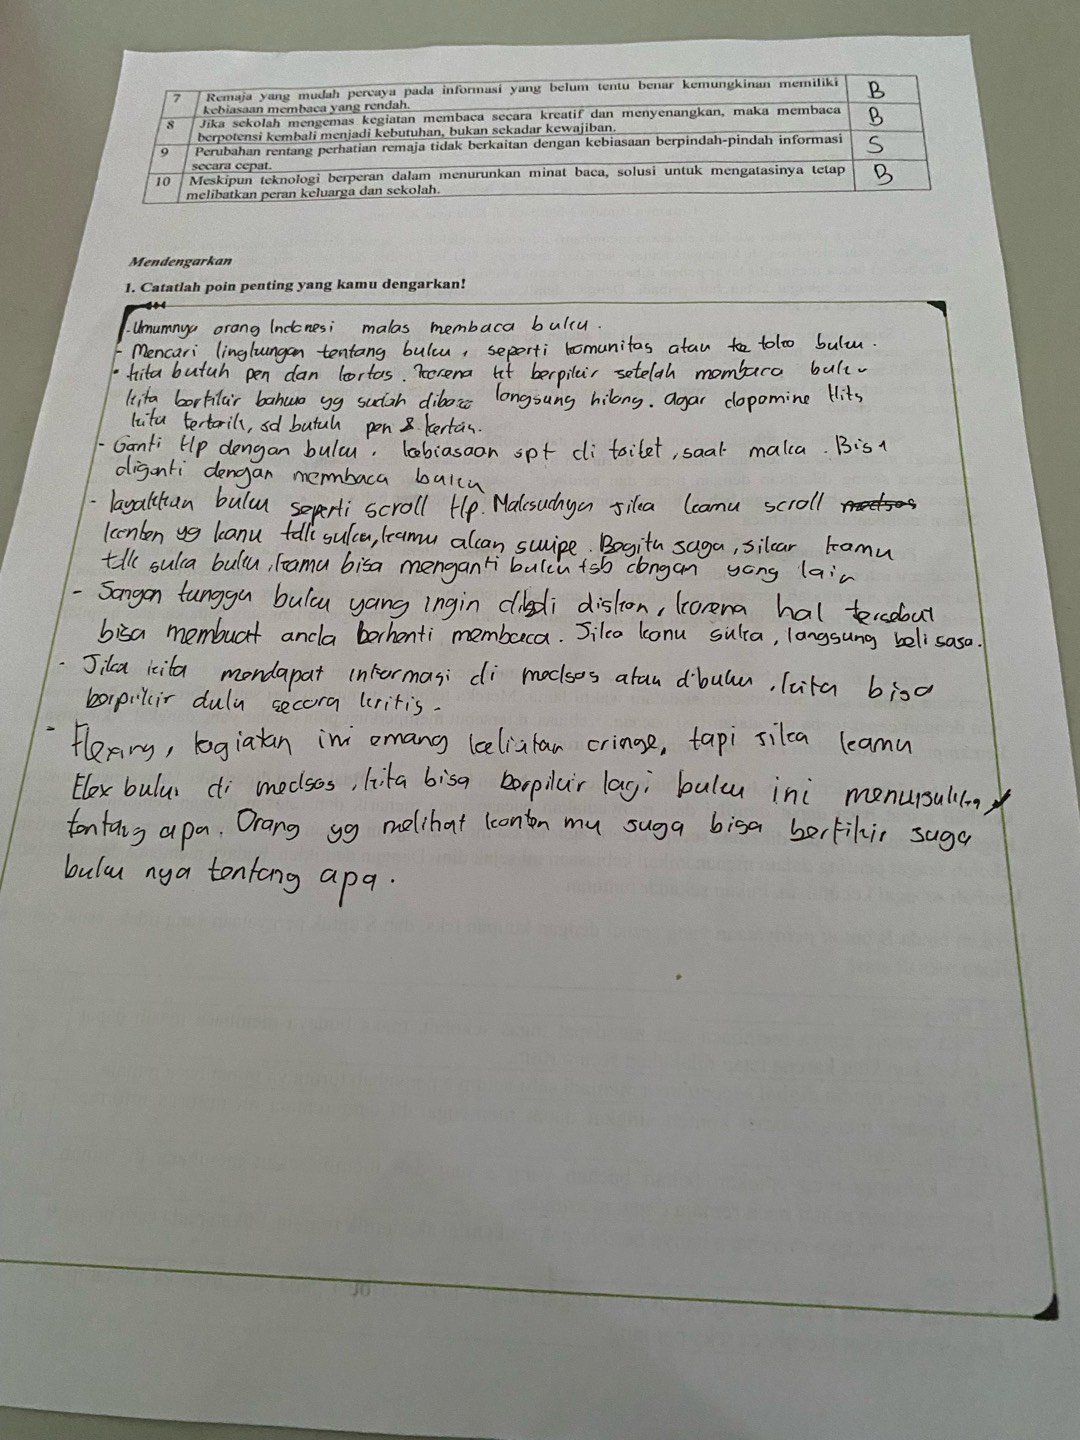 7 Remaja yang mudah percaya pada informasi yang belum tentu benar kemungkinan memiliki B
kebiasaan membaca yang rendah.
8 Jika sekolah mengemas kegiatan membaca secara kreatif dan menyenangkan, maka membaca B
berpotensi kembali menjadi kebutuhan, bukan sekadar kewajiban.
9 Perubahan rentang perhatian remaja tidak berkaitan dengan kebiasaan berpindah-pindah informasi S
secara cepat.
10 Meskipun teknologi berperan dalam menurunkan minat baca, solusi untuk mengatasinya tetap B
melibatkan peran keluarga dan sekolah.
Mendengarkan
1. Catatlah poin penting yang kamu dengarkan!
- Umumnya orang Indonesi malas membaca buku.
- Mencari lingkungan tentang buku, seperti komunitas atau toko buku.
- kita butuh pen dan kertas. karena kt berpikir setelah membaca buku
kita berfikir bahwa yg sudah dibaca langsung hilang. agar dopamine Hits
kita tertarik, sd butuh pen & kertas.
- Ganti Hp dengan buku. kebiasaan spt di toilet, saat maka. Bisa
diganti dengan membaca buku
- layakkan buku seperti scroll Hp. Maksudnya jika kamu scroll medsos
konten yg kamu tdk suka, kamu akan swipe. Begitu juga, jikar kamu
tdk suka buku, kamu bisa menganti buku tsb dengan yang lain
- Jangan tunggu buku yang ingin dibeli diskon, karena hal tersebut
bisa membuat anda berhenti membaca. Jika kamu suka, langsung beli saja.
- Jika kita mendapat informasi di medsos atau dibuku, kita bisa
berpikir dulu secara kritis.
- Flexing, kegiatan ini emang keliatan cringe, tapi jika kamu
Flex buku di medsos, kita bisa berpikir lagi buku ini
tentang apa. Orang yg melihat konten mu juga bisa berfikir juga
buku nya tentang apa.